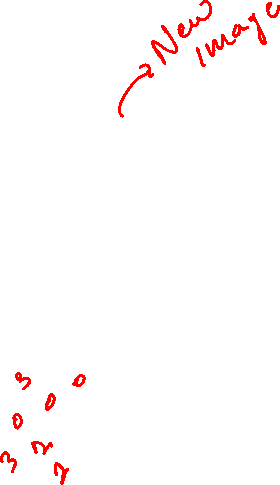 New
Image
3 0 0
0 2 2
3